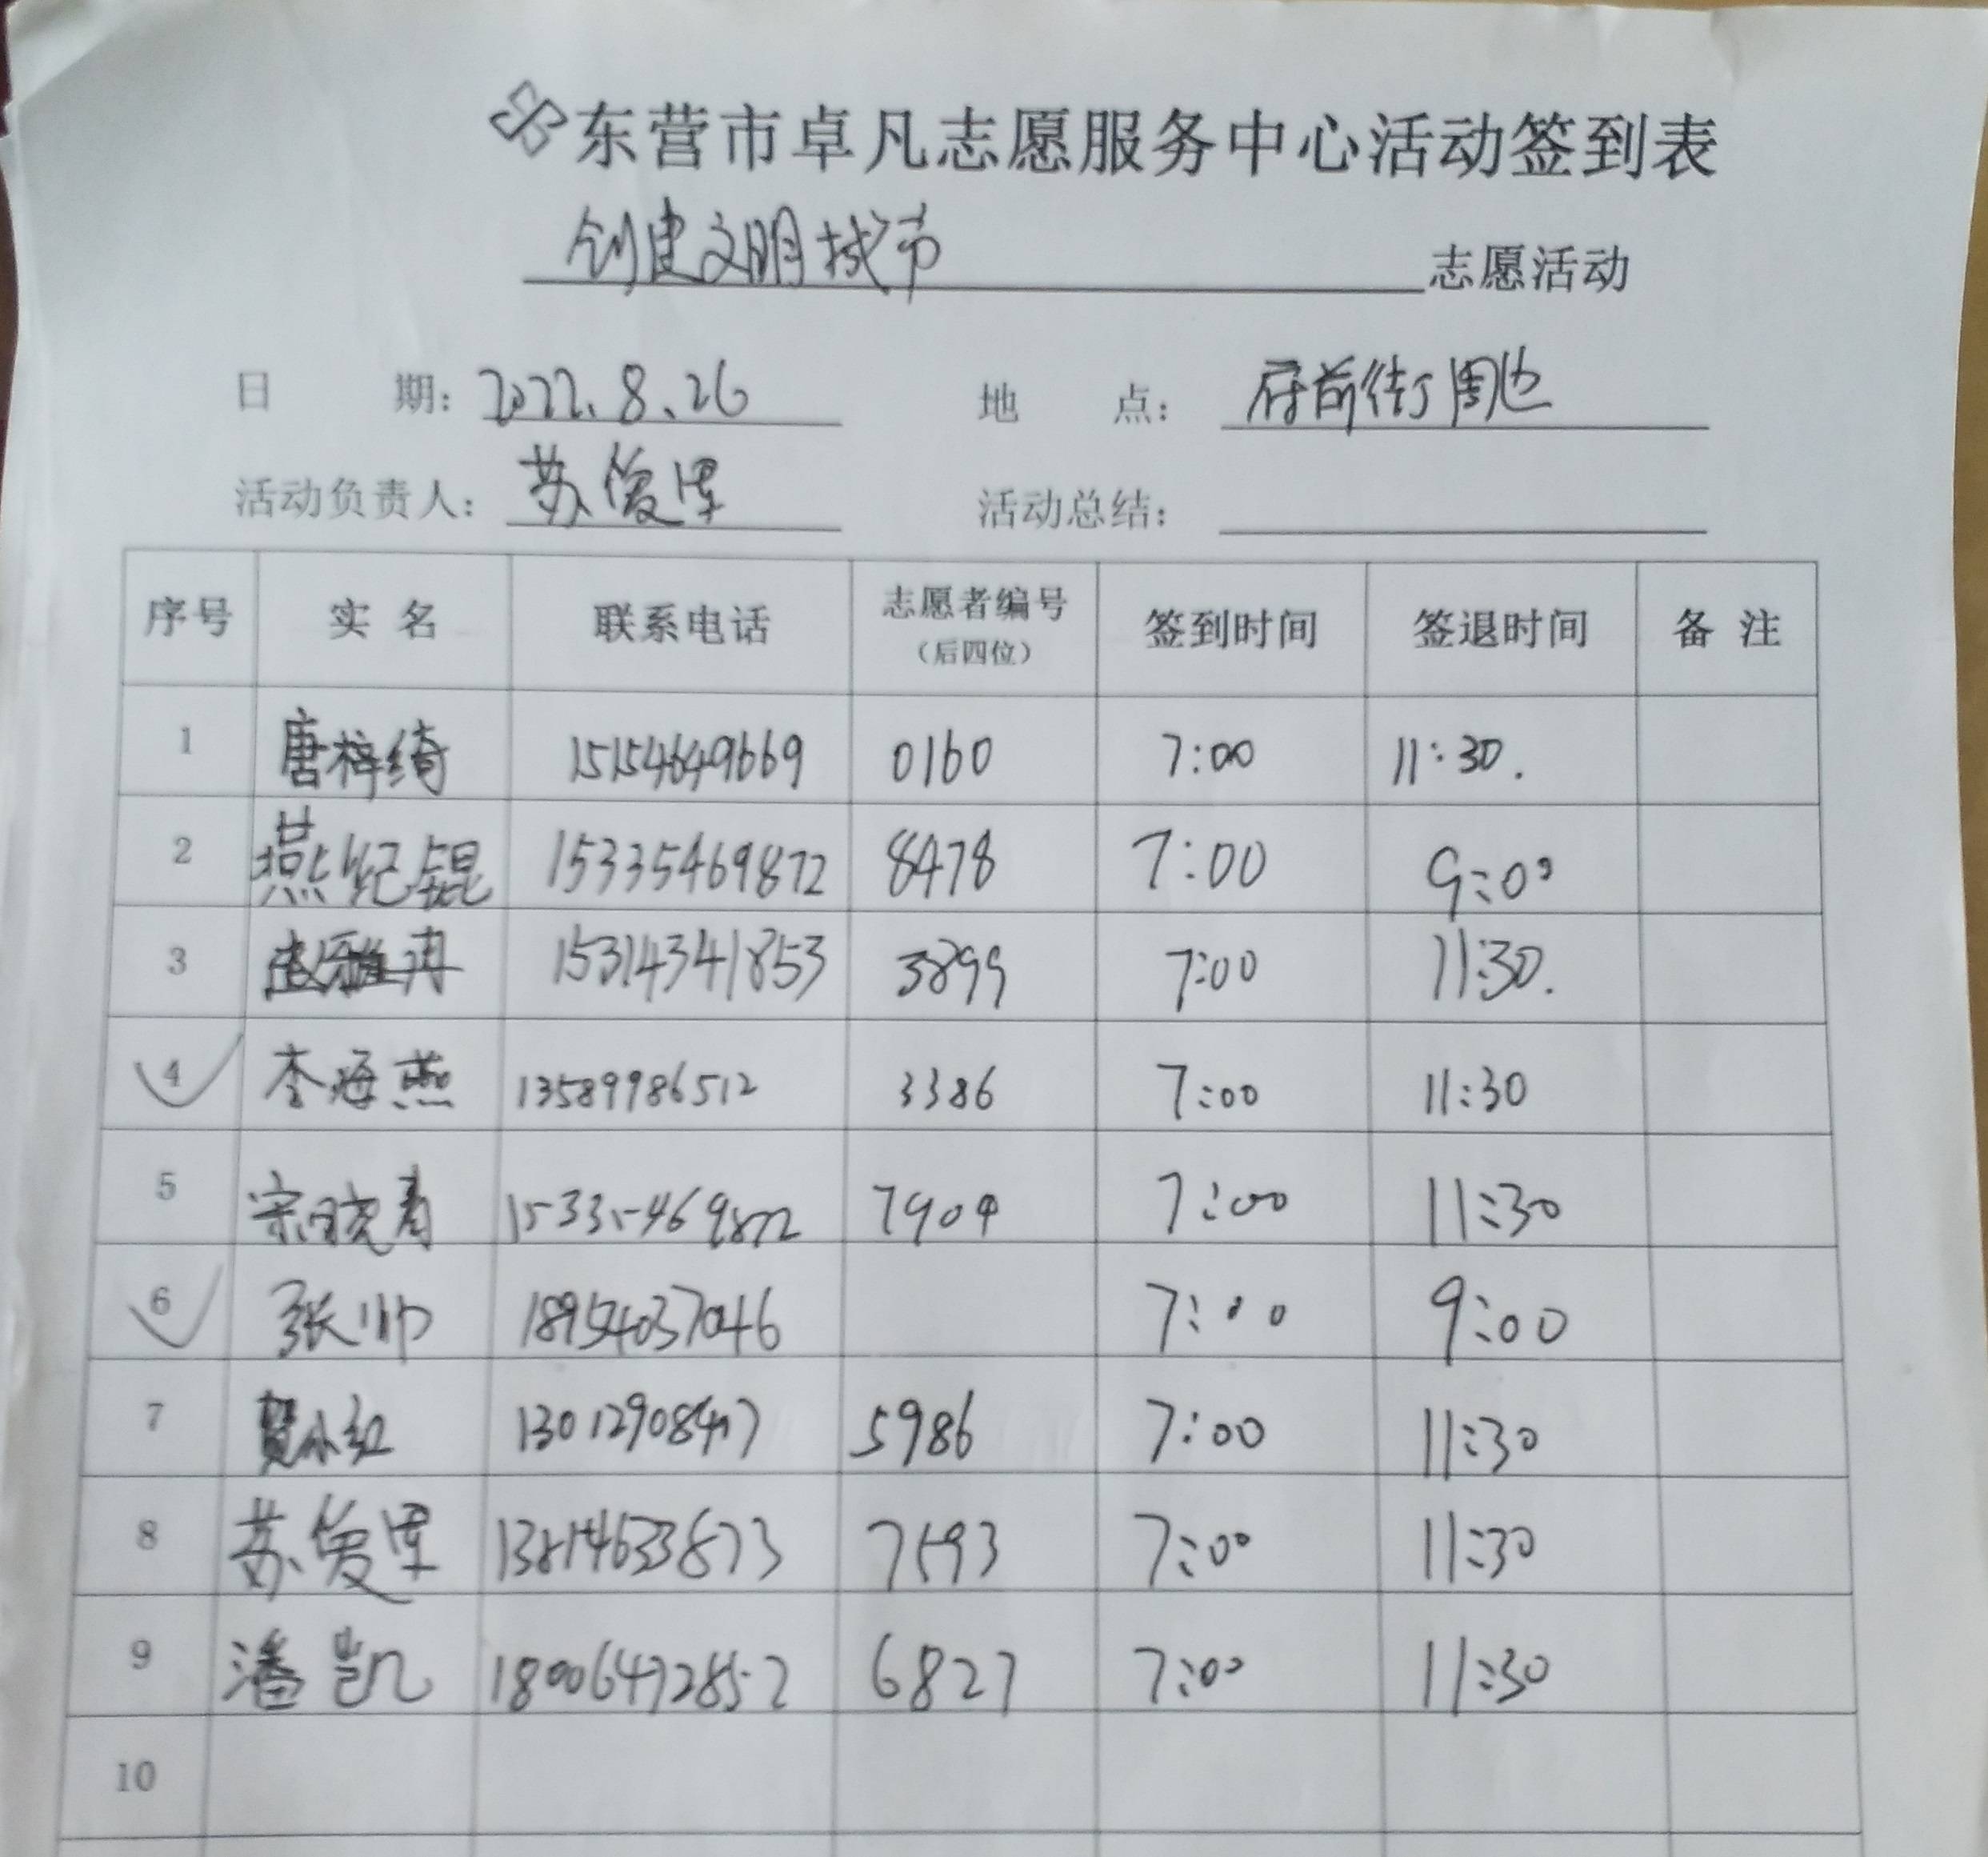 东营市卓凡志愿服务中心活动签到表
创建文明城市 志愿活动
日 期: 2022.8.26 地 点: 府前街周边
活动负责人: 苏俊 活动总结:
序号 实 名 联系电话 志愿者编号 (后四位) 签到时间 签退时间 备 注
1 唐梓绮 15154649669 0160 7:00 11:30.
2 燕纪锟 15335469872 8478 7:00 9:00
3 15314341853 3899 7:00 11:30.
4 李海燕 13589986512 3386 7:00 11:30
5 宋晓青 15335469872 7909 7:00 11:30
6 张帅 18954037046 7:00 9:00
7 贺小红 5986 7:00 11:30
8 苏俊 7593 7:00 11:30
9 潘凯 18006472852 6827 7:00 11:30
10